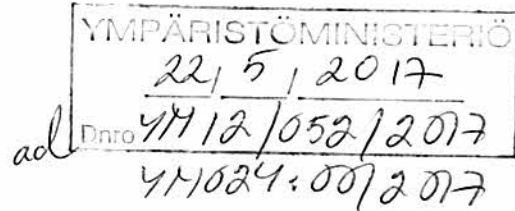 YMPÄRISTÖMINISTERIÖ
22, 5, 2017
ad Dnro YM12/052/2017
YM024:00/2017